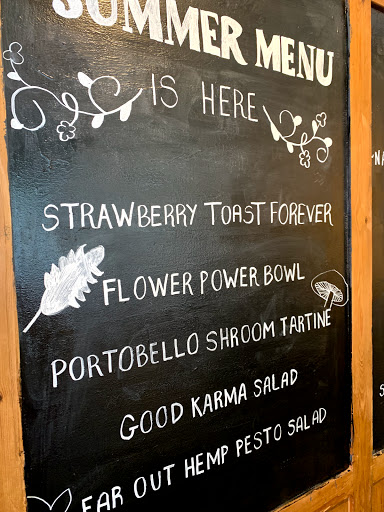 SUMMER MENU
IS HERE
STRAWBERRY TOAST FOREVER
FLOWER POWER BOWL
PORTOBELLO SHROOM TARTINE
GOOD KARMA SALAD
FAR OUT HEMP PESTO SALAD